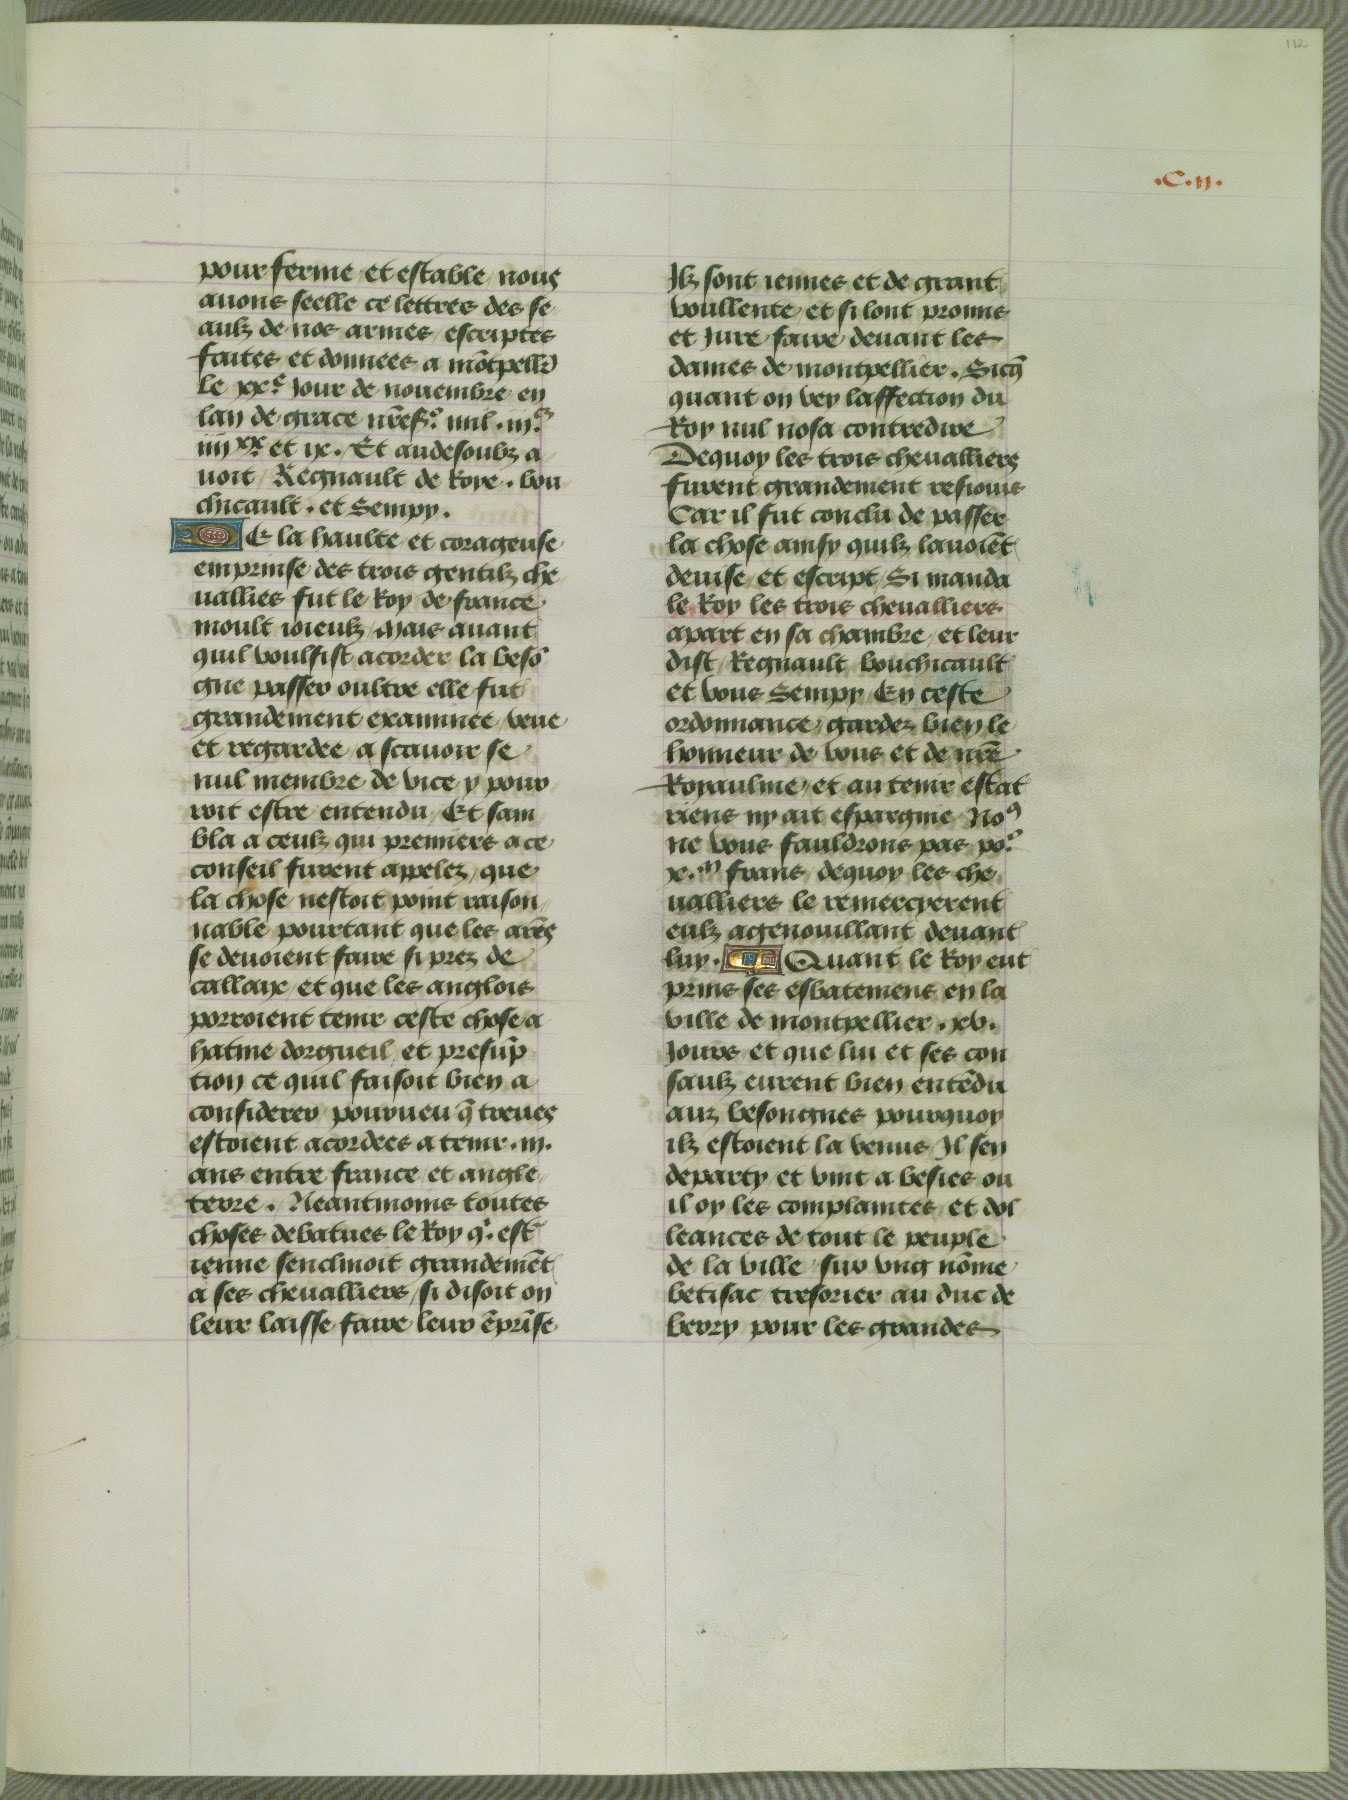 112
.C.ii.
pour ferme et estable nous
auons seelle ce lettres des se
aulz de nos armes escriptes
faites et donnees a mõtpellr̃
le xxe. Jour de nouembre en
lan de grace nr̃e sr. mil. iiic.
iiii xx et ix. Et audesoubz a
uoit Regnault de Roye. bou
chicault. et Sempy.
De la haulte et corageuse
emprinse des trois gentilz che
ualliers fut le Roy de france
moult ioieulz Mais auant
quil voulsist acorder la beso
gne passer oultre elle fut
grandement examinee veue
et regardee a scauoir se
nul membre de vice y pour
roit estre entendu Et sam
bla a ceulz qui premiers a ce
conseil furent appelez que
la chose nestoit point raison
nable pourtant que les ar̃es
se deuoient faire si prez de
callaix et que les anglois
porroient tenir ceste chose a
hatine dorgueil et presũp
tion ce quil faisoit bien a
considerer pourueu q̃ treues
estoient acordees a tenir. iii.
ans entre france et angle
terre. Neantmoins toutes
choses debatues le Roy qi. est
ienne senclinoit grandemẽt
a ses cheualliers si disoit on
leur laisse faire leur ẽprĩse
Jlz sont iennes et de grant
voullente et si lont promis
et Jure faire deuant les
dames de montpellier. Sicq̃
quant on vey laffection du
Roy nul nosa contredire
Dequoy les trois cheualliers
furent grandement resiouis
Car il fut conclu de passer
la chose ainsy quilz lauoiẽt
deuise et escript Si manda
le Roy les trois cheualliers
apart en sa chambre et leur
dist Regnault bouchicault
et vous Sempy En ceste
ordonnance gardez bien le
honneur de vous et de nr̃e
Royaulme et au tenir estat
riens ny ait espargnie No9
ne vous fauldrons pas por.
x.m frans dequoy les che
ualliers le remercyerent
eulz agenouillant deuant
luy. Quant le Roy eut
prins ses esbatemens en la
ville de montpellier. xv.
Jours et que lui et ses con
saulz eurent bien entẽdu
auz besongnes pourquoy
ilz estoient la venus Jl sen
departy et vint a besies ou
il oy les complaintes et dol
leances de tout le peuple
de la ville sur vng nõme
betisac tresorier au duc de
berry pour les grandes